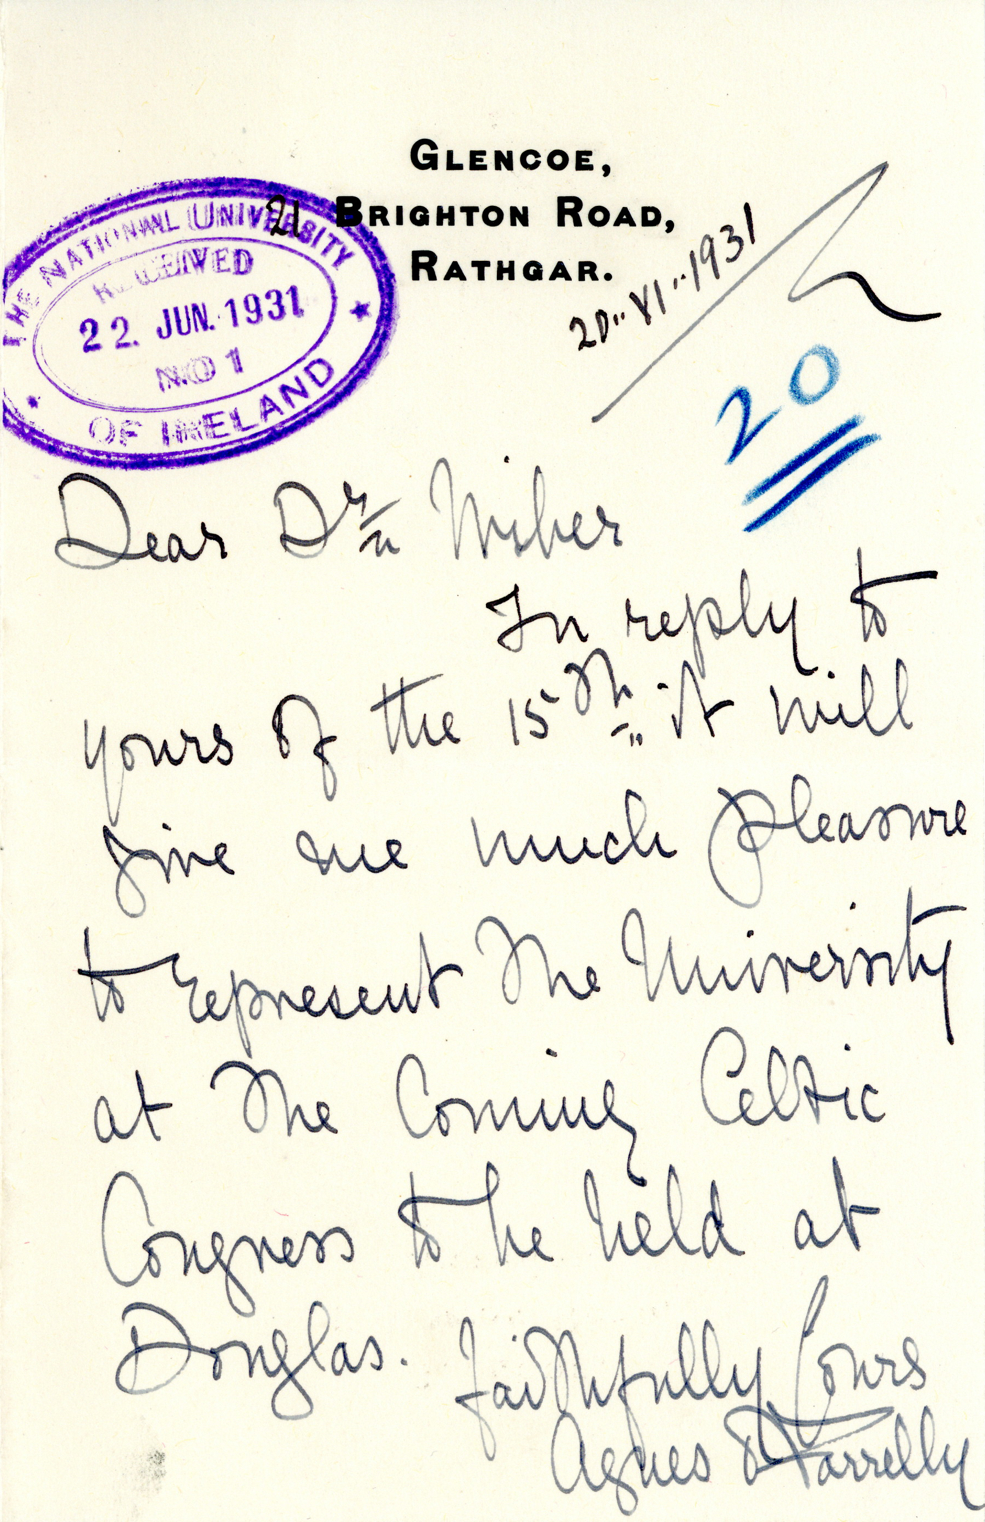 GLENCOE,
21 BRIGHTON ROAD,
RATHGAR.
THE NATIONAL UNIVERSITY
RECEIVED
22. JUN. 1931
NO 1
OF IRELAND
20.VI.1931
20
Dear Dr
In reply to
yours of the 15th it will
give me much pleasure
to represent the University
at the Coming Celtic
Congress to be held at
Douglas.
Faithfully Yours
Agnes O'Farrelly